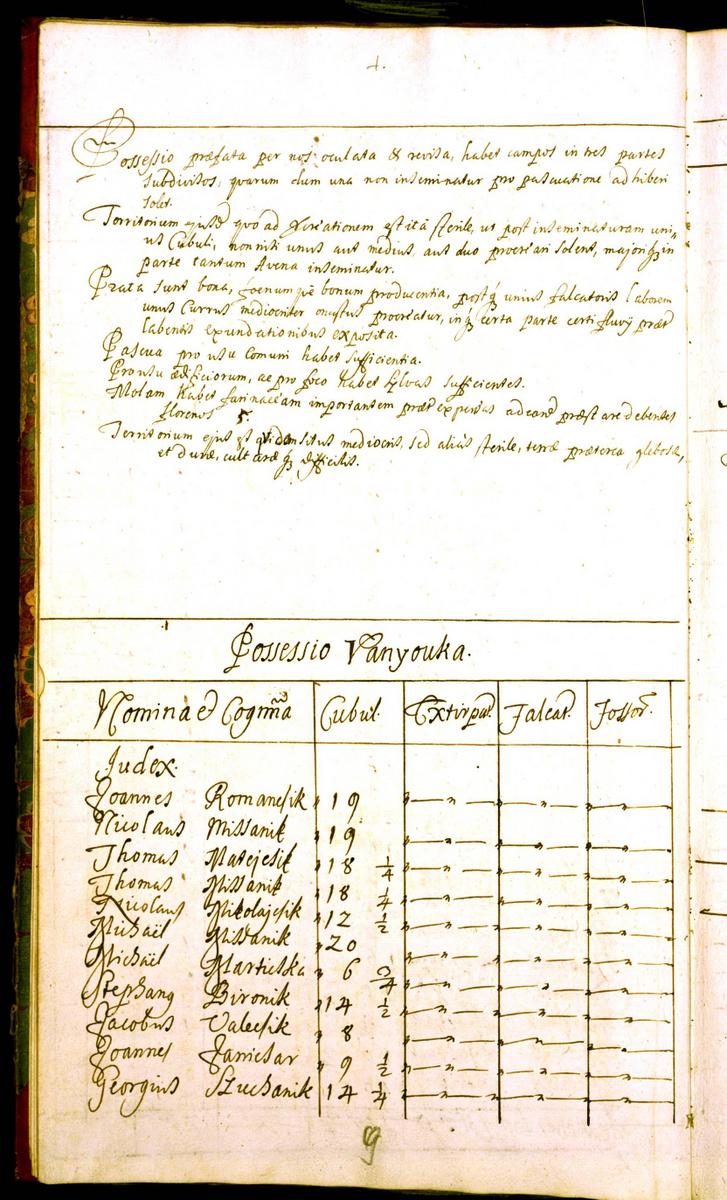 4.
Possessio præfata per nos oculata & revisa, habet campos in tres partes
subdivisos, quarum dum una non inseminatur pro pascuatione adhiberi
solet.
Territorium ejusd quo ad procreationem est ita sterile, ut post inseminaturam uni-
us Cubuli, non nisi unus aut medius, aut duo procreari solent, majoriq in
parte tantum Avena inseminatur.
Prata sunt bona, foenumqe bonum producentia, postq unius falcatoris laborem
unus Currus mediocriter onustus procreatur, inq certa parte certi fluvÿ præt
labentis exundationibus exposita.
Pascua pro usu Comuni habet sufficientia.
Pro usu ædificiorum, ac pro foco habet sylvas sufficientes.
Molam habet farinaceam importantem præt expensas ad eand præstare debentes
florenos 5.
Territorium ejus est quidem situs mediocris, sed alias sterile, terræ præterea glebosæ,
et duræ, culturæq difficilis.
Possessio Vanyouka.
Nomina et Cognõa Cubul. Extirpat. Falcat. Fossor.
Judex.
Joannes Romancsik " 19 " " "
Nicolaus Missanik " 19 " " "
Thomas Matejcsik " 18 1/4 " " "
Thomas Missanik " 18 1/4 " " "
Nicolaus Mikolajcsik " 12 1/2 " " "
Michaël Missanik " 20 " " "
Michaël Marticska " 6 3/4 " " "
Stephang Bironik " 14 1/2 " " "
Jacobus Valecsik " 8 " " "
Joannes Janicsar " 9 1/2 " " "
Georgius Szuchanik " 14 1/4 " " "
9